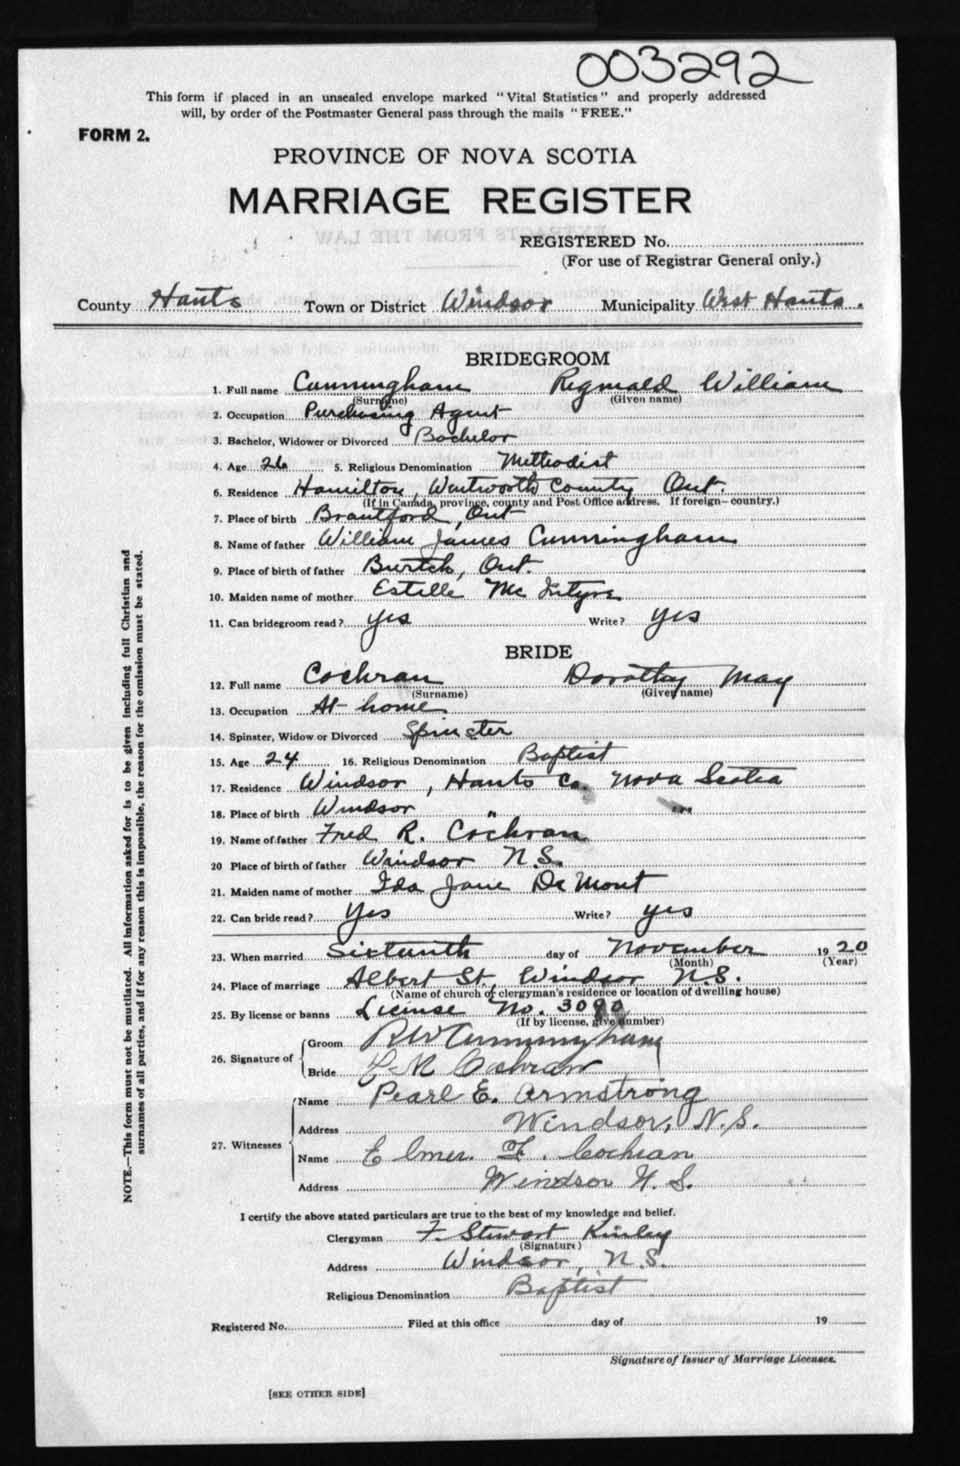 003292
This form if placed in an unsealed envelope marked "Vital Statistics" and properly addressed
will, by order of the Postmaster General pass through the mails "FREE."
FORM 2.
PROVINCE OF NOVA SCOTIA
MARRIAGE REGISTER
EXTRACTS FROM THE LAW
REGISTERED No.
(For use of Registrar General only.)
County Hants Town or District Windsor Municipality West Hants.
BRIDEGROOM
1. Full name Cunningham Reginald William
(Surname) (Given name)
2. Occupation Purchasing Agent
3. Bachelor, Widower or Divorced Bachelor
4. Age 26 5. Religious Denomination Methodist
6. Residence Hamilton, Wentworth County Ont.
(If in Canada, province, county and Post Office address. If foreign—country.)
7. Place of birth Brantford, Ont
8. Name of father William James Cunningham
9. Place of birth of father Burtch, Ont.
10. Maiden name of mother Estelle McIntyre
11. Can bridegroom read? yes Write? yes
BRIDE
12. Full name Cochran Dorothy May
(Surname) (Given name)
13. Occupation At home
14. Spinster, Widow or Divorced Spinster
15. Age 24 16. Religious Denomination Baptist
17. Residence Windsor, Hants Co. Nova Scotia
18. Place of birth Windsor
19. Name of father Fred R. Cochran
20 Place of birth of father Windsor N.S.
21. Maiden name of mother Ida Jane De Mont
22. Can bride read? Yes Write? yes
23. When married Sixteenth day of November 1920
(Month) (Year)
24. Place of marriage Albert St., Windsor N.S.
(Name of church or clergyman's residence or location of dwelling house)
25. By license or banns License No. 3090
(If by license, give number)
26. Signature of Groom RW Cunningham
Bride Cochran
27. Witnesses Name Pearl E. Armstrong
Address Windsor, N.S.
Name Elmer F. Cochran
Address Windsor N.S.
I certify the above stated particulars are true to the best of my knowledge and belief.
Clergyman F. Stewart Kinley
(Signature)
Address Windsor, N.S.
Religious Denomination Baptist
Registered No. Filed at this office day of 19
Signature of Issuer of Marriage Licenses.
[SEE OTHER SIDE]
NOTE.—This form must not be mutilated. All information asked for is to be given including full Christian and
surnames of all parties, and if for any reason this is impossible, the reason for the omission must be stated.